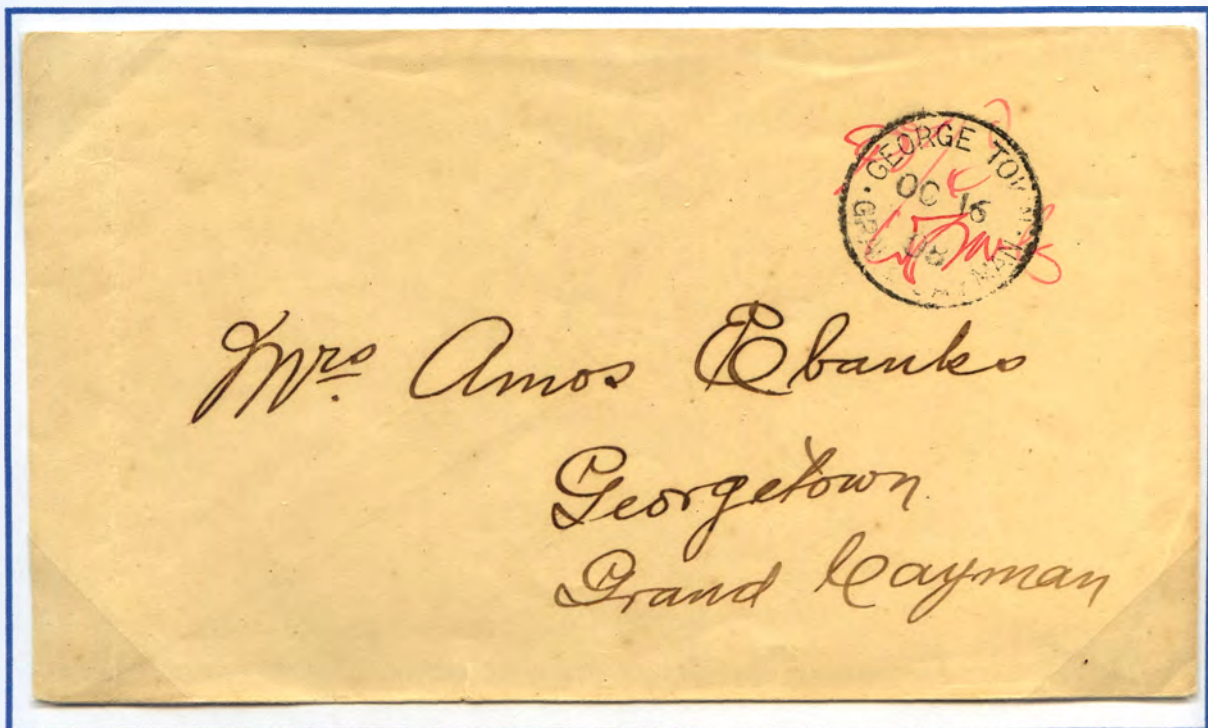 GEORGE TOWN · GRAND CAYMAN ·
OC 16
08
Mrs Amos Ebanks
Georgetown
Grand Cayman